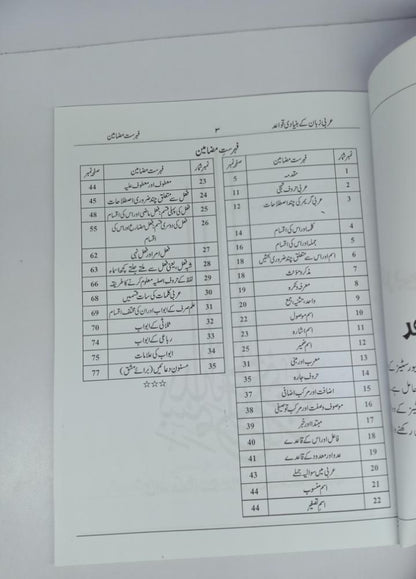 عربی زبان کے بنیادی قواعد ۳ فہرست مضامین
فہرست مضامین
نمبر شمار فہرست مضامین صفحہ نمبر
1 مقدمہ 5
2 عربی حروف تہجی 11
3 عربی گریمر کی چند اصطلاحات 12
4 کلمہ اور اس کی اقسام 14
5 جملہ اور اس کی اقسام 16
6 اسم اور اس سے متعلق چند ضروری بحثیں 16
7 مذکر و مؤنث 18
8 معرفہ و نکرہ 19
9 واحد، تثنیہ، جمع 20
10 اسم موصول 22
11 اسم اشارہ 23
12 اسم ضمیر 25
13 معرب اور مبنی 31
14 حروف جارہ 35
15 اضافت اور مرکب اضافی 37
16 موصوف و صفت اور مرکب توصیفی 38
17 مبتدا اور خبر 39
18 فاعل اور اس کے قاعدے 40
19 عدد اور معدود کے قاعدے 41
20 عربی میں سوالیہ جملے 43
21 اسم منسوب 44
22 اسم تصغیر 44
نمبر شمار فہرست مضامین صفحہ نمبر
23 معطوف اور معطوف علیہ 44
24 فعل سے متعلق چند ضروری اصطلاحات 45
25 فعل کی پہلی قسم: فعل ماضی اور اس کی اقسام 48
26 فعل کی دوسری قسم: فعل مضارع اور اس کی 55
اقسام
27 فعل امر اور فعل نہی 62
28 شبہ فعل، یعنی فعل سے ملتے جلتے کچھ اسماء 63
29 لفظ کے حروف اصلیہ معلوم کرنے کا طریقہ 66
30 عربی کلمات کی سات قسمیں 68
31 علم صرف کے ابواب اور ان کی مختلف اقسام 69
32 ثلاثی کے ابواب 70
33 رباعی کے ابواب 74
34 ابواب کی علامات 75
35 مسنون دعائیں (برائے مشق) 77
☆☆☆